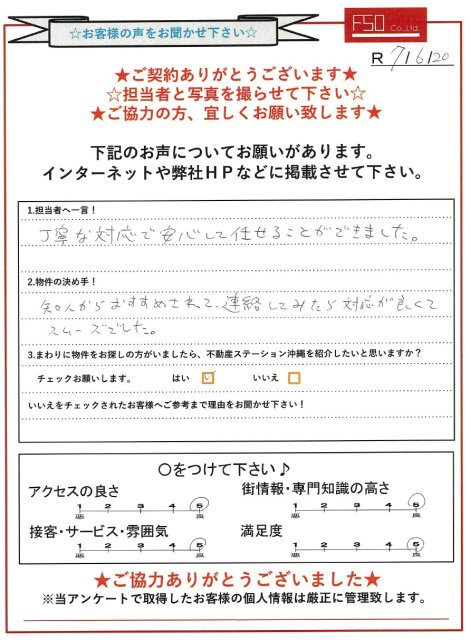 ☆お客様の声をお聞かせ下さい☆
FSO Co.,Ltd.
R 7/6/20
★ご契約ありがとうございます★
☆担当者と写真を撮らせて下さい☆
★ご協力の方、宜しくお願い致します★
下記のお声についてお願いがあります。
インターネットや弊社HPなどに掲載させて下さい。
1.担当者へ一言！
丁寧な対応で安心して任せることができました。
2.物件の決め手！
知人からおすすめされて、連絡してみたら対応が良くて
スムーズでした。
3.まわりに物件をお探しの方がいましたら、不動産ステーション沖縄を紹介したいと思いますか？
チェックお願いします。 はい ☑ いいえ □
いいえをチェックされたお客様へご参考まで理由をお聞かせ下さい！
〇をつけて下さい♪
アクセスの良さ 街情報・専門知識の高さ
1 2 3 4 5 1 2 3 4 5
悪 良 悪 良
接客・サービス・雰囲気 満足度
1 2 3 4 5 1 2 3 4 5
悪 良 悪 良
★ご協力ありがとうございました★
※当アンケートで取得したお客様の個人情報は厳正に管理致します。